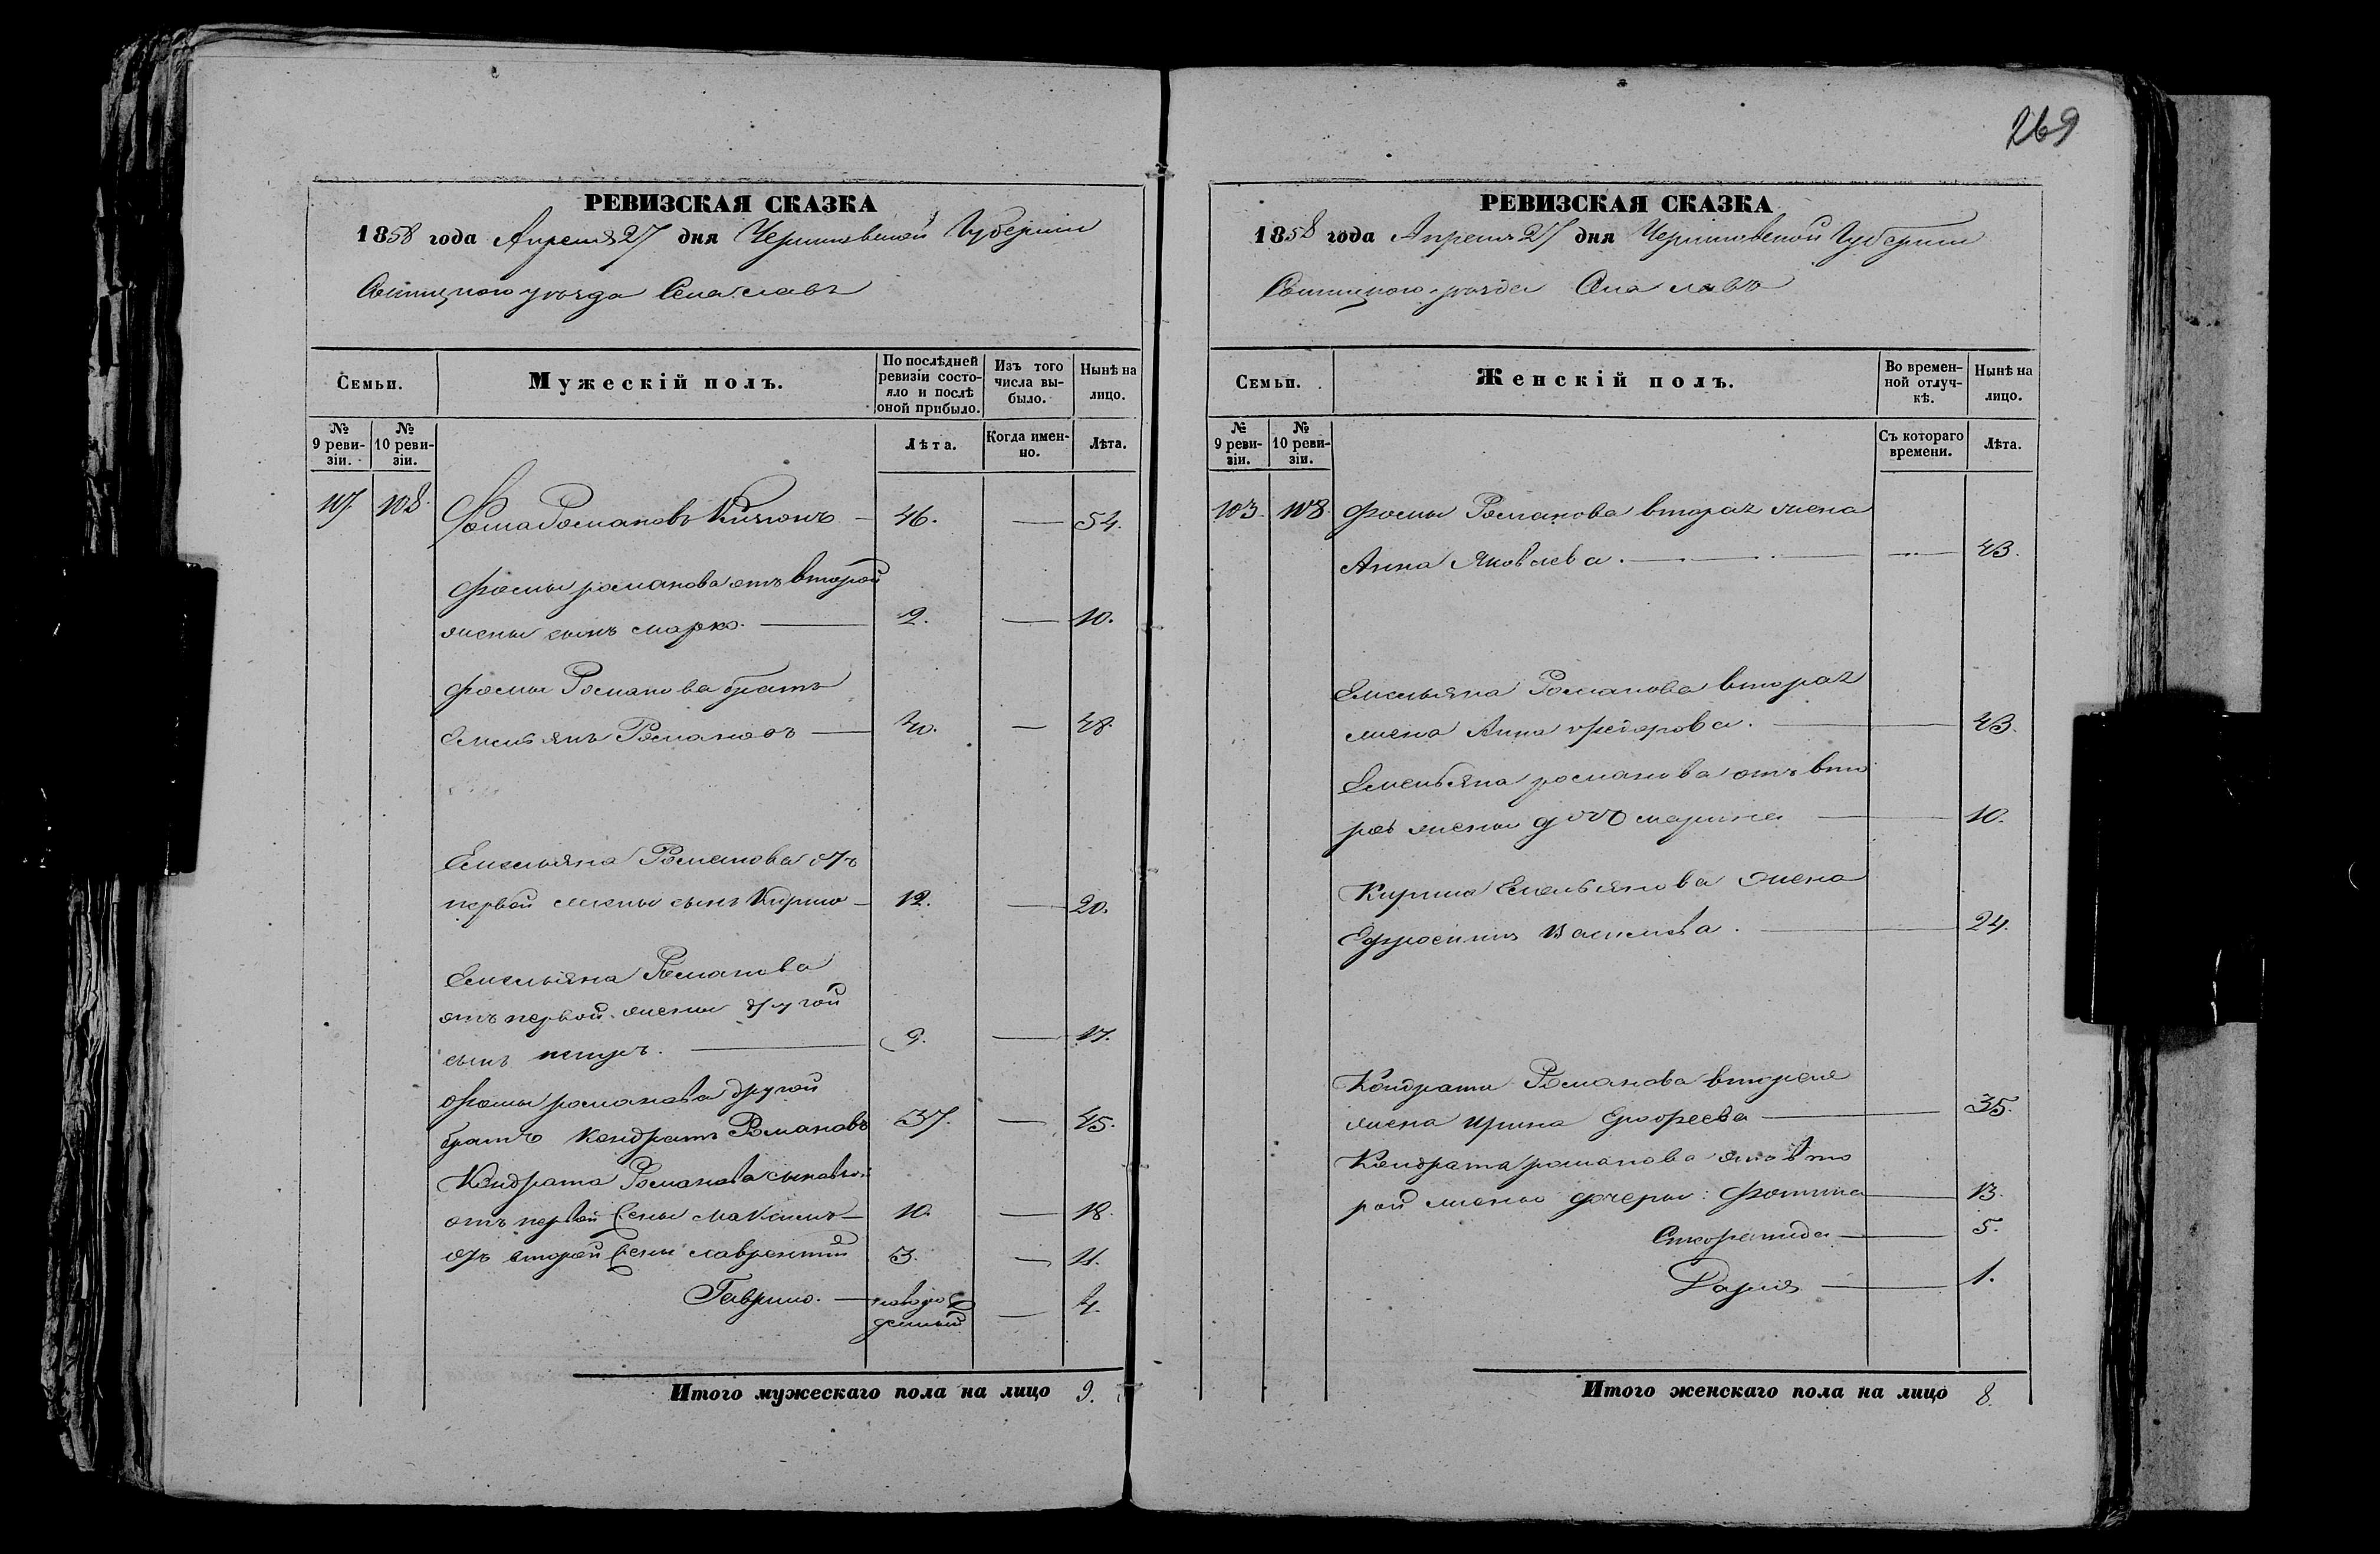 269
РЕВИЗСКАЯ СКАЗКА
1858 года Апреля 27 дня Черниговской Губернии
уезда Села
Семьи.
Мужескій полъ.
По послѣдней ревизіи состо-
яло и послѣ
оной прибыло.
Изъ того
числа вы-
было.
Нынѣ на
лицо.
№
9 реви-
зіи.
№
10 реви-
зіи.
Лѣта.
Когда имен-
но.
Лѣта.
107 108. Фома Романовъ — 46. — 54.
Фомы романова отъ второй
жены сынъ марко. — 2. — 10.
Фомы Романова братъ
Емельянъ Романовъ — 40. — 48.
Емельяна Романова отъ
первой жены сынъ Кирило — 12. — 20.
Емельяна Романова
отъ первой жены другой
сынъ петръ. — 9. — 17.
Фомы романова другой
братъ Кондратъ Романовъ 37. — 45.
Кондрата Романова сыновья
отъ первой жены Максимъ — 10. — 18.
отъ второй жены лаврентий 3. — 11.
Гаврило. — новорожденный — 4.
Итого мужескаго пола на лицо 9.
РЕВИЗСКАЯ СКАЗКА
1858 года Апреля 27 дня Черниговской Губернии
уезда Села
Семьи.
Женскій полъ.
Во времен-
ной отлуч-
кѣ.
Нынѣ на
лицо.
№
9 реви-
зіи.
№
10 реви-
зіи.
Съ котораго
времени.
Лѣта.
103. 108. Фомы Романова вторая жена
Анна Яковлева. — — 43.
Емельяна Романова вторая
жена Анна Федорова. — 43.
Емельяна романова отъ вто
рой жены дочь марина — 10.
Кирила Емельянова жена
Ефросиния Василева. — 24.
Кондрата Романова вторая
жена ирина — 35.
Кондрата романова отъ вто
рой жены дочери: Фотина — 13.
— 5.
Дария — 1.
Итого женскаго пола на лицо 8.